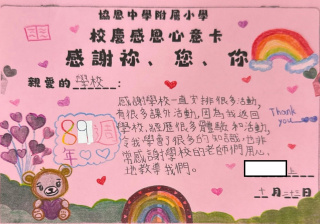 協恩中學附屬小學
校慶感恩心意卡
感謝祢、您、你
親愛的學校：
感謝學校一直安排很多活動，
有很多課外活動，因為我返回
學校，經歷很多體驗和活動，
令我學會很多的知識，也非
常感謝學校的老師們用心
地教導我們。
89週
年
Thank
you
上
十一月二十三日